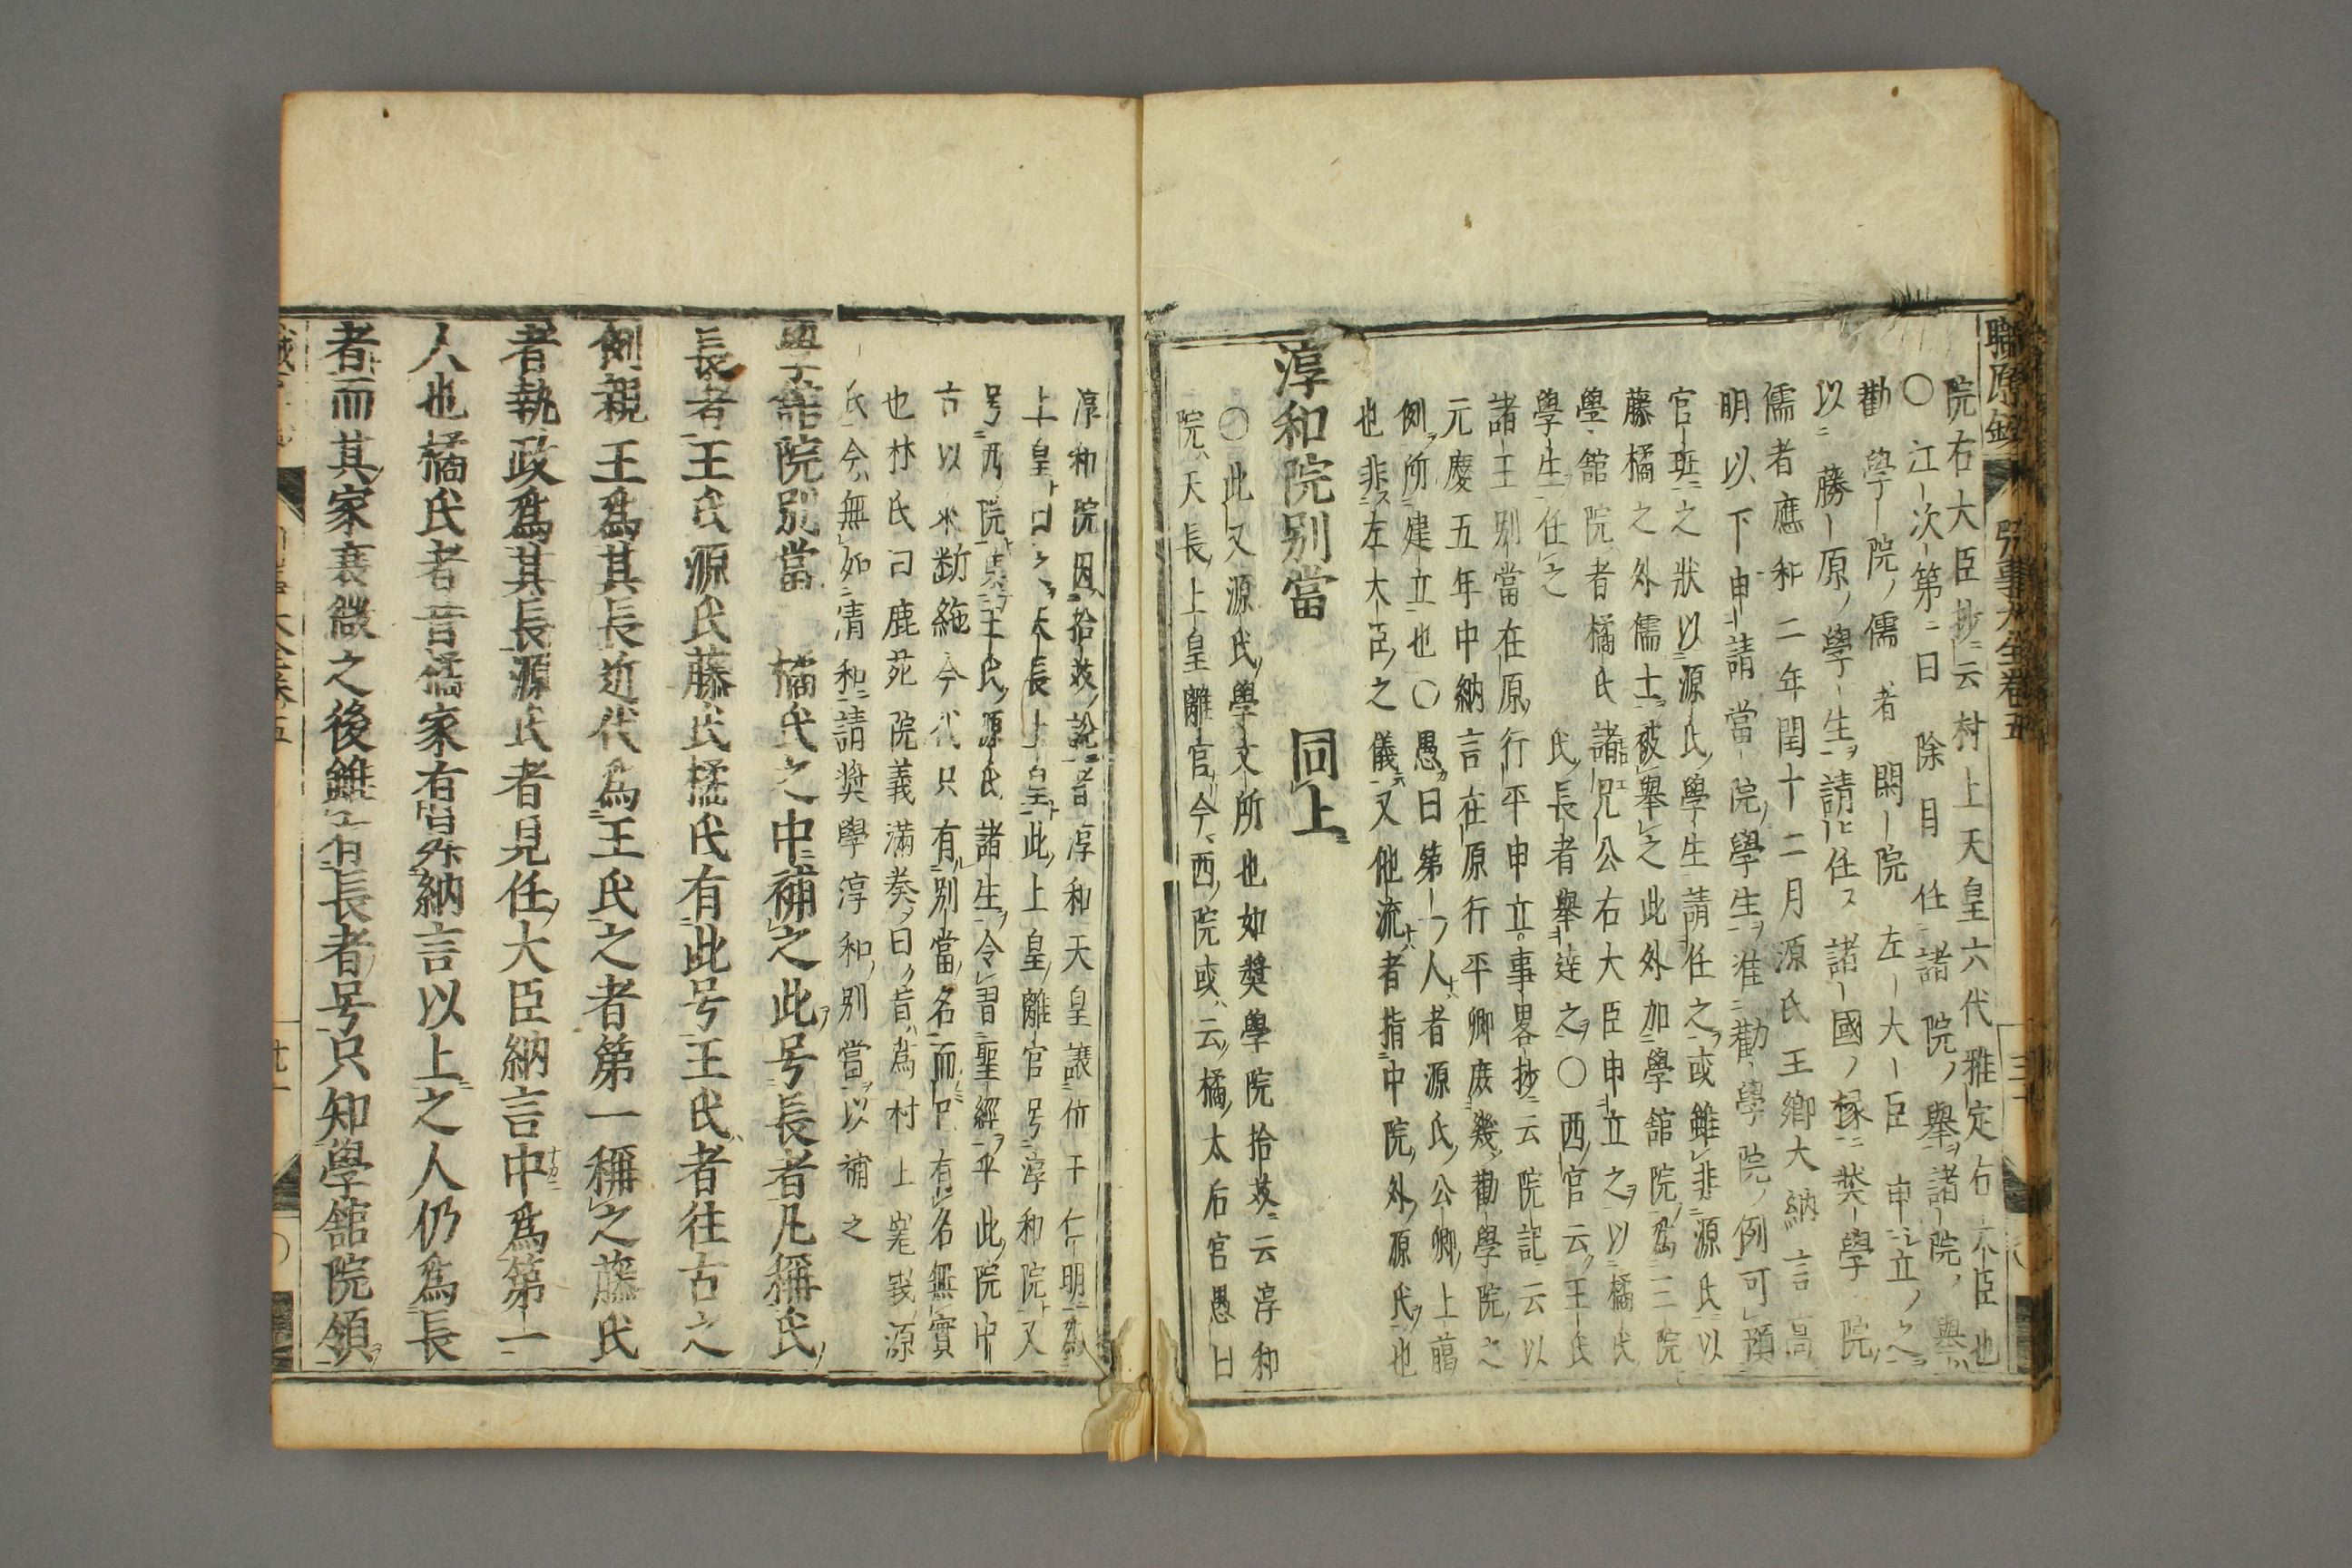 院右大臣抄云村上天皇六代雅定右大臣也
〇江次第ニ曰除目任諸院ノ擧ヲ諸院ノ擧ハ
勸學院ノ儒者閑院左大臣申立ノ之
以ニ勝原ノ學生ヲ請ヒ任ス諸國ノ掾ニ奬學院
儒者應和二年閏十二月源氏王卿大納言高
明以下申請當院ノ學生ヲ准ニ勸學院ノ例可預
官班之狀以源氏學生請任之或雖非源氏以
藤橘之外儒士被擧之此外加學舘院爲三院
學舘院者橘氏諸兄公右大臣申立之以橘氏
學生任之 氏長者擧達之〇西官云王氏
諸王別當在原行平申立事畧抄云院記云以
元慶五年中納言在原行平卿庶幾勸學院之
例所建立也〇愚曰第一ノ人者源氏公卿上﨟
也非左大臣之儀又他流者指中院外源氏也
淳和院別當 同上
〇此又源氏學文所也如奬學院拾芥云淳和
院天長上皇離宮今西院或云橘太后宮愚曰
淳和院因拾芥說昔淳和天皇讓位于仁明爲
上皇曰之天長上皇此上皇離宮号淳和院又
号西院某王氏源氏諸生令習聖經乎此院中
古以來斷絶今代只有別當名而已有名無實
也林氏曰鹿苑院義滿奏曰昔爲村上冕義源
氏今無如清和請奬學淳和別當以補之
學舘院別當 橘氏之中補之此号長者凡稱氏
長者王氏源氏藤氏橘氏有此号王氏者往古之
例親王爲其長近代爲王氏之者第一稱之藤氏
者執政爲其長源氏者見任大臣納言中爲第一
人也橘氏者昔橘家有官外納言以上之人仍爲長
者而其家衰微之後雖有長者号只知學舘院領
職原鈔 引事大全卷五